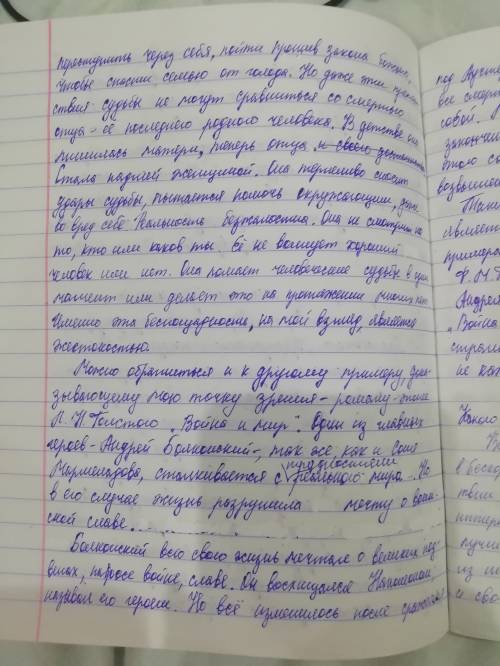 переступить через себя, пойти против закона божьего,
чтобы спасти семью от голода. Но даже эти
ствия судьбы не могут сравниться со смертью
отца - её последнего родного человека. В детстве она
лишилась матери, теперь отца и своего
Стала падшей женщиной. Она терпеливо сносит
удары судьбы, пытается помочь окружающим, даже
во вред себе. Реальность безжалостна. Она не смотрит на
то, кто или каков ты. Её не волнует хороший
человек или нет. Она ломает человеческие судьбы в один
момент или делает это на протяжении многих лет.
Именно эта беспощадность, на мой взгляд, является
жестокостью.
Можно обратиться и к другому примеру, дока-
зывающему мою точку зрения - роману-эпопее
Л. Н. Толстого "Война и мир". Один из главных
героев - Андрей Болконский -, так же, как и Соня
Мармеладова, сталкивается с реального мира. Но
в его случае жизнь разрушила мечту о воин-
ской славе.
Болконский всю свою жизнь мечтал о великих под-
вигах, войне, славе. Он восхищался Наполеоном,
называл его героем. Но всё изменилось после сражения
под Аусте
все смерт
собой.
закончи
этого со
возвыше
Так
являет
пример
Ф. М. Д
Андрей
"Война
стра
не ка
Какого
В
в бесед
твии
интер
лучи
из
и сво